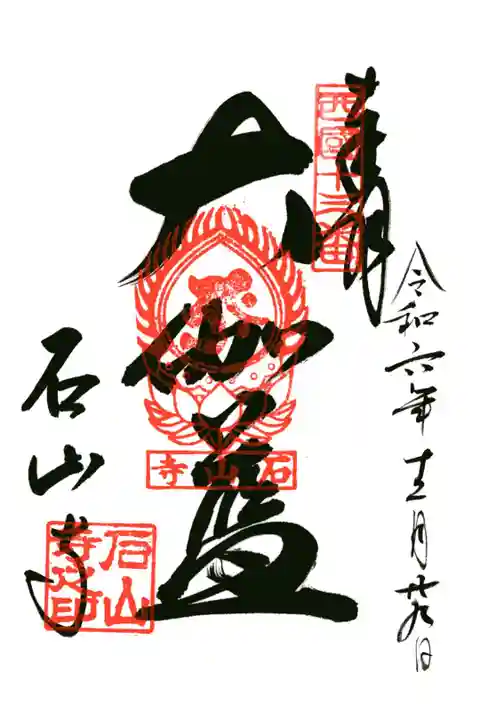 奉拝
西國十三番
令和六年十二月廿九日
大伽藍
石山寺
石山寺
石山寺之印